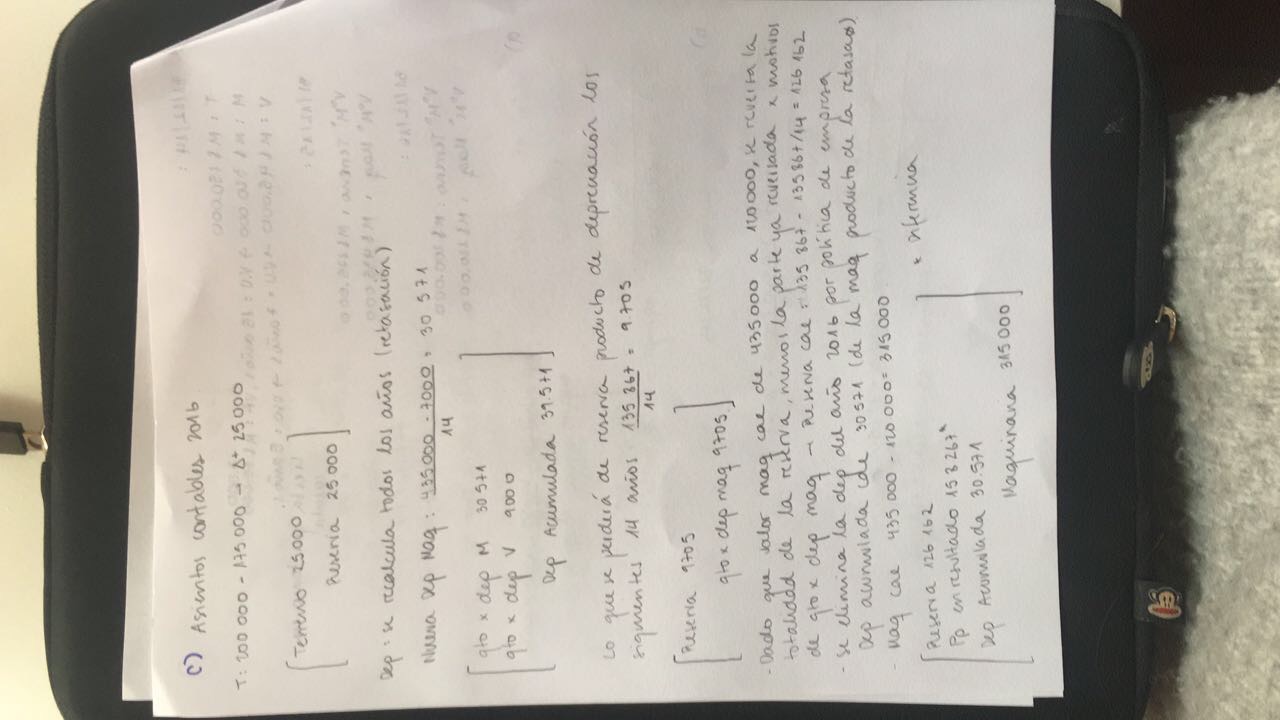 c) Asientos contables 2016
T: 200 000 - 175 000 → Δ+ 25 000
Terreno 25000
Reserva 25 000
Dep: se recalcula todos los años (retasación)
Nueva Dep Maq: 435000 - 7000 = 30 571
14
gto x dep M 30571
gto x dep V 9000
Dep Acumulada 39.571
Lo que se perderá de reserva producto de depreciación los
siguientes 14 años: 135 867 = 9 705
14
Reserva 9705
gto x dep maq 9705
- Dado que valor maq cae de 435000 a 120000, se revierte la
totalidad de la reserva, menos la parte ya reversada x motivos
de gto x dep maq → Reserva cae: 135 867 - 135867/14 = 126 162
- se elimina la dep del año 2016 por política de empresa
Dep acumulada cae 30571 (de la maq producto de la retasac)
- Maq cae 435 000 - 120 000 = 315 000
Reserva 126 162
Pp en resultado 158 267*
Dep Acumulada 30.571
Maquinaria 315 000
* Diferencia